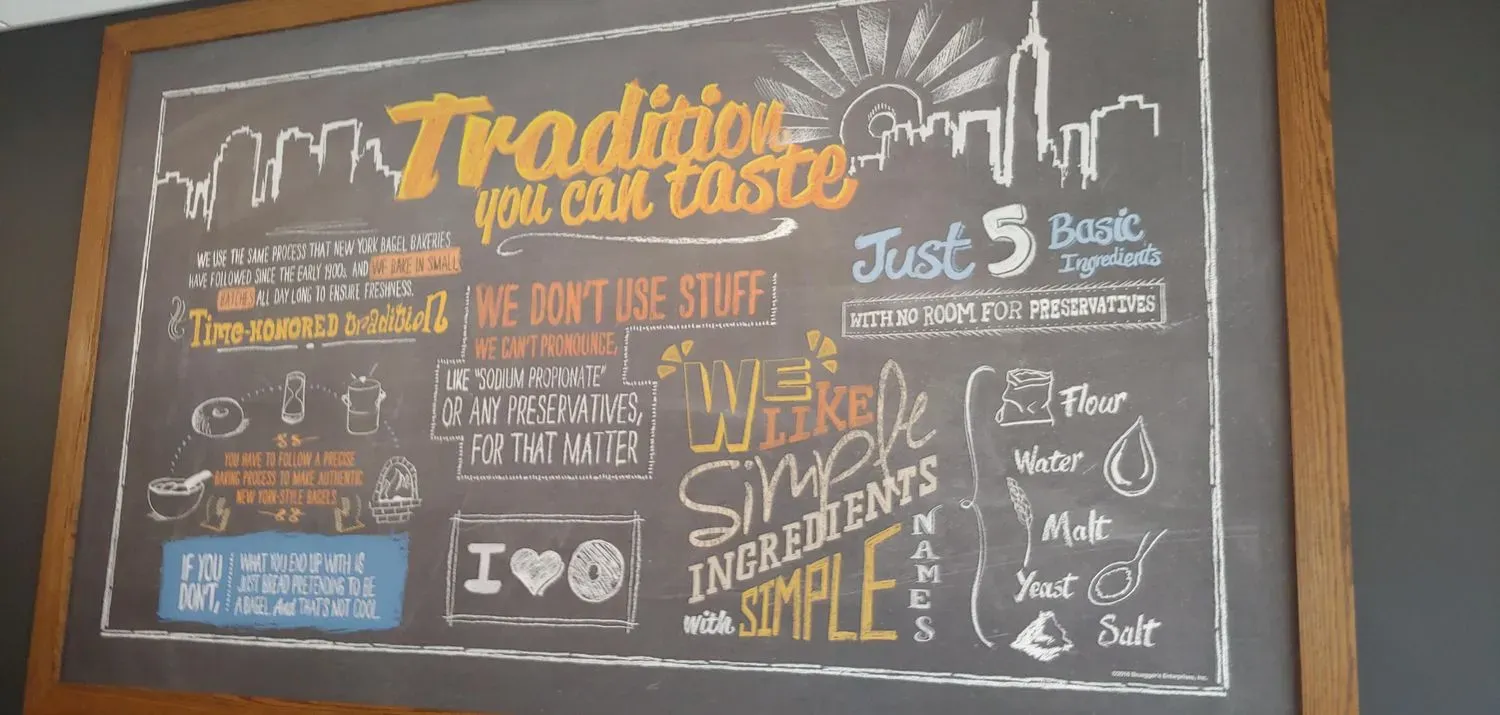 Tradition
you can taste
WE USE THE SAME PROCESS THAT NEW YORK BAGEL BAKERIES
HAVE FOLLOWED SINCE THE EARLY 1900s. AND WE BAKE IN SMALL
BATCHES ALL DAY LONG TO ENSURE FRESHNESS.
TIME-HONORED tradition
YOU HAVE TO FOLLOW A PRECISE
BAKING PROCESS TO MAKE AUTHENTIC
NEW YORK-STYLE BAGELS
IF YOU
DON'T,
WHAT YOU END UP WITH IS
JUST BREAD PRETENDING TO BE
A BAGEL. And THAT'S NOT COOL.
WE DON'T USE STUFF
WE CAN'T PRONOUNCE,
LIKE "SODIUM PROPIONATE"
OR ANY PRESERVATIVES,
FOR THAT MATTER
I
"WE"
LIKE
Simple
INGREDIENTS
with SIMPLE
NAMES
Just 5 Basic
Ingredients
WITH NO ROOM FOR PRESERVATIVES
Flour
Water
Malt
Yeast
Salt
©2016 Bruegger's Enterprises, Inc.